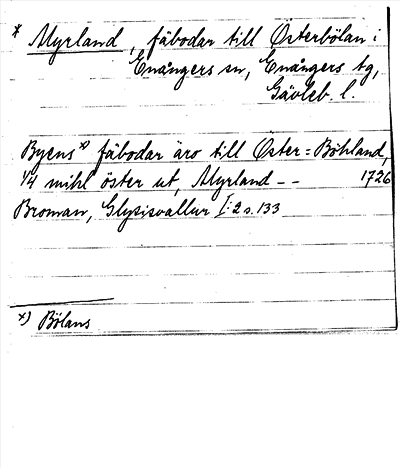 * Myrland, fäbodar till Österbölan i
Enångers sn, Enångers tg,
Gävleb. l.
Byens x) fäbodar äro till Öster=Böhland,
1/4 mihl öster ut, Myrland -- 1726
Broman, Glysisvallur I:2 s. 133
x) Bölans